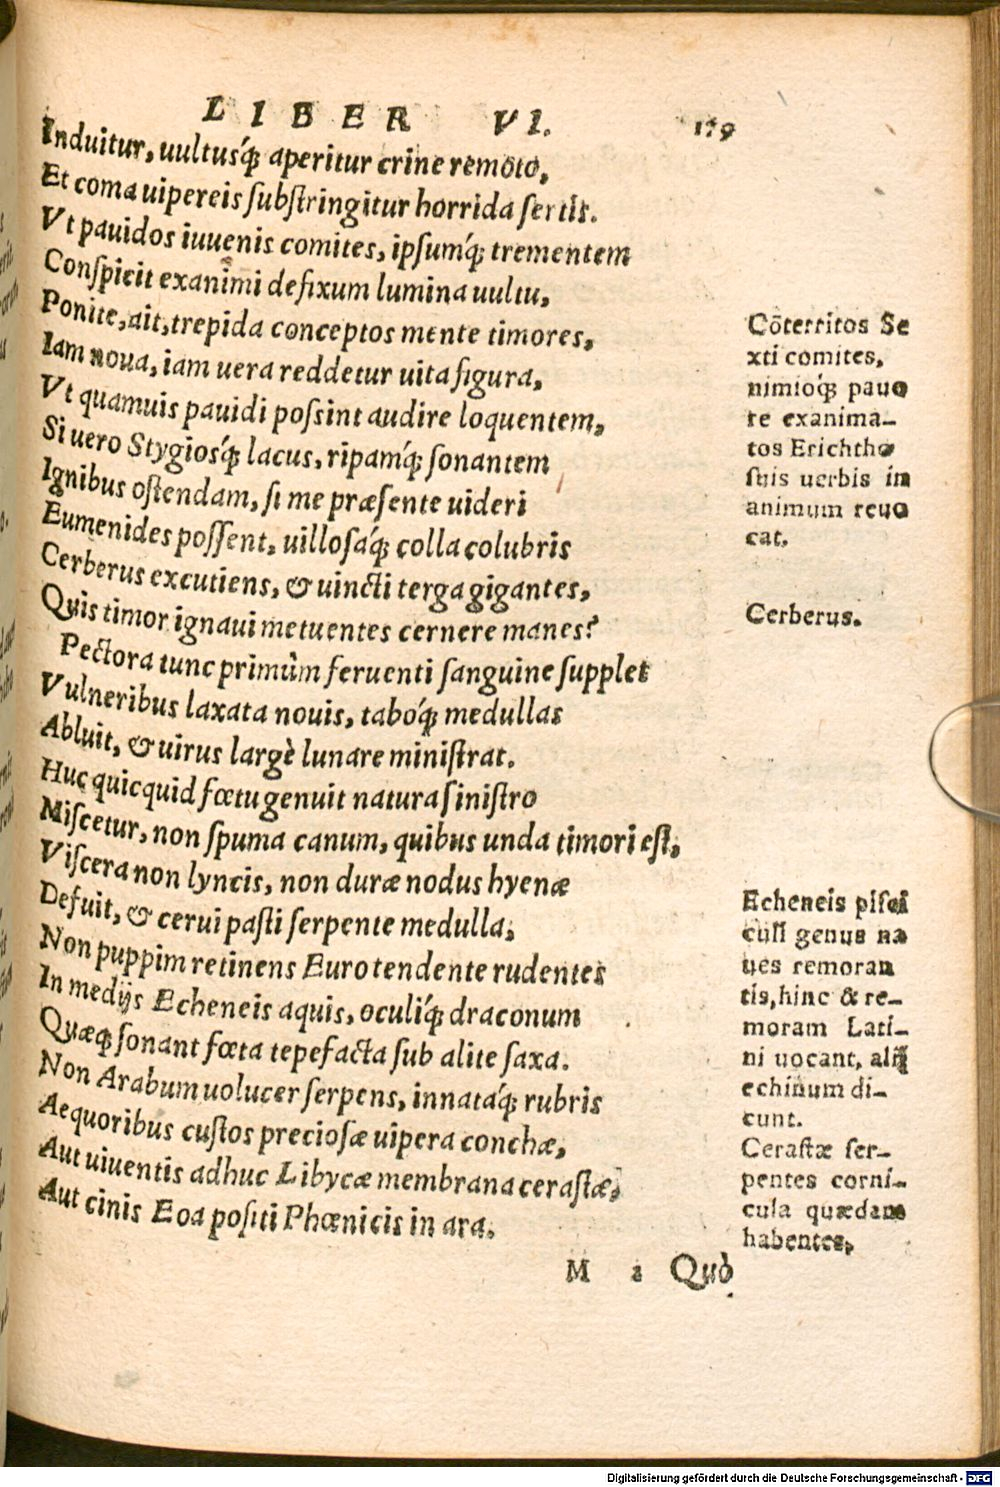 LIBER VI. 179
Induitur, uultusq́; aperitur crine remoto,
Et coma uipereis ſubſtringitur horrida ſertis.
Vt pauidos iuuenis comites, ipſumq́; trementem
Conſpicit exanimi defixum lumina uultu,
Ponite, ait, trepida conceptos mente timores,
Iam noua, iam uera reddetur uita figura,
Vt quamuis pauidi poſsint audire loquentem,
Si uero Stygiosq́; lacus, ripamq́; ſonantem
Ignibus oſtendam, ſi me præſente uideri
Eumenides poſſent, uilloſaq́; colla colubris
Cerberus excutiens, & uincti terga gigantes,
Quis timor ignaui metuentes cernere manes?
Pectora tunc primùm feruenti ſanguine ſupplet
Vulneribus laxata nouis, taboq́; medullas
Abluit, & uirus largè lunare miniſtrat.
Huc quicquid fœtu genuit natura ſiniſtro
Miſcetur, non ſpuma canum, quibus unda timori eſt,
Viſcera non lyncis, non duræ nodus hyenæ
Defuit, & cerui paſti ſerpente medulla,
Non puppim retinens Euro tendente rudentes
In medijs Echeneis aquis, oculiq́; draconum
Quæq; ſonant fœta tepefacta ſub alite ſaxa.
Non Arabum uolucer ſerpens, innataq́; rubris
Aequoribus cuſtos precioſæ uipera conchæ,
Aut uiuentis adhuc Libycæ membrana ceraſtæ,
Aut cinis Eoa poſiti Phœnicis in ara.
M 2 Quò
Cōterritos Se
xti comites,
nimioq́; pauo
re exanima-
tos Erichtho
ſuis uerbis in
animum reuo
cat.
Cerberus.
Echeneis piſci
culi genus na
ues remoran
tis, hinc & re-
moram Lati-
ni uocant, alij
echinum di-
cunt.
Ceraſtæ ſer-
pentes corni-
cula quædam
habentes,
Digitalisierung gefördert durch die Deutsche Forschungsgemeinschaft - DFG